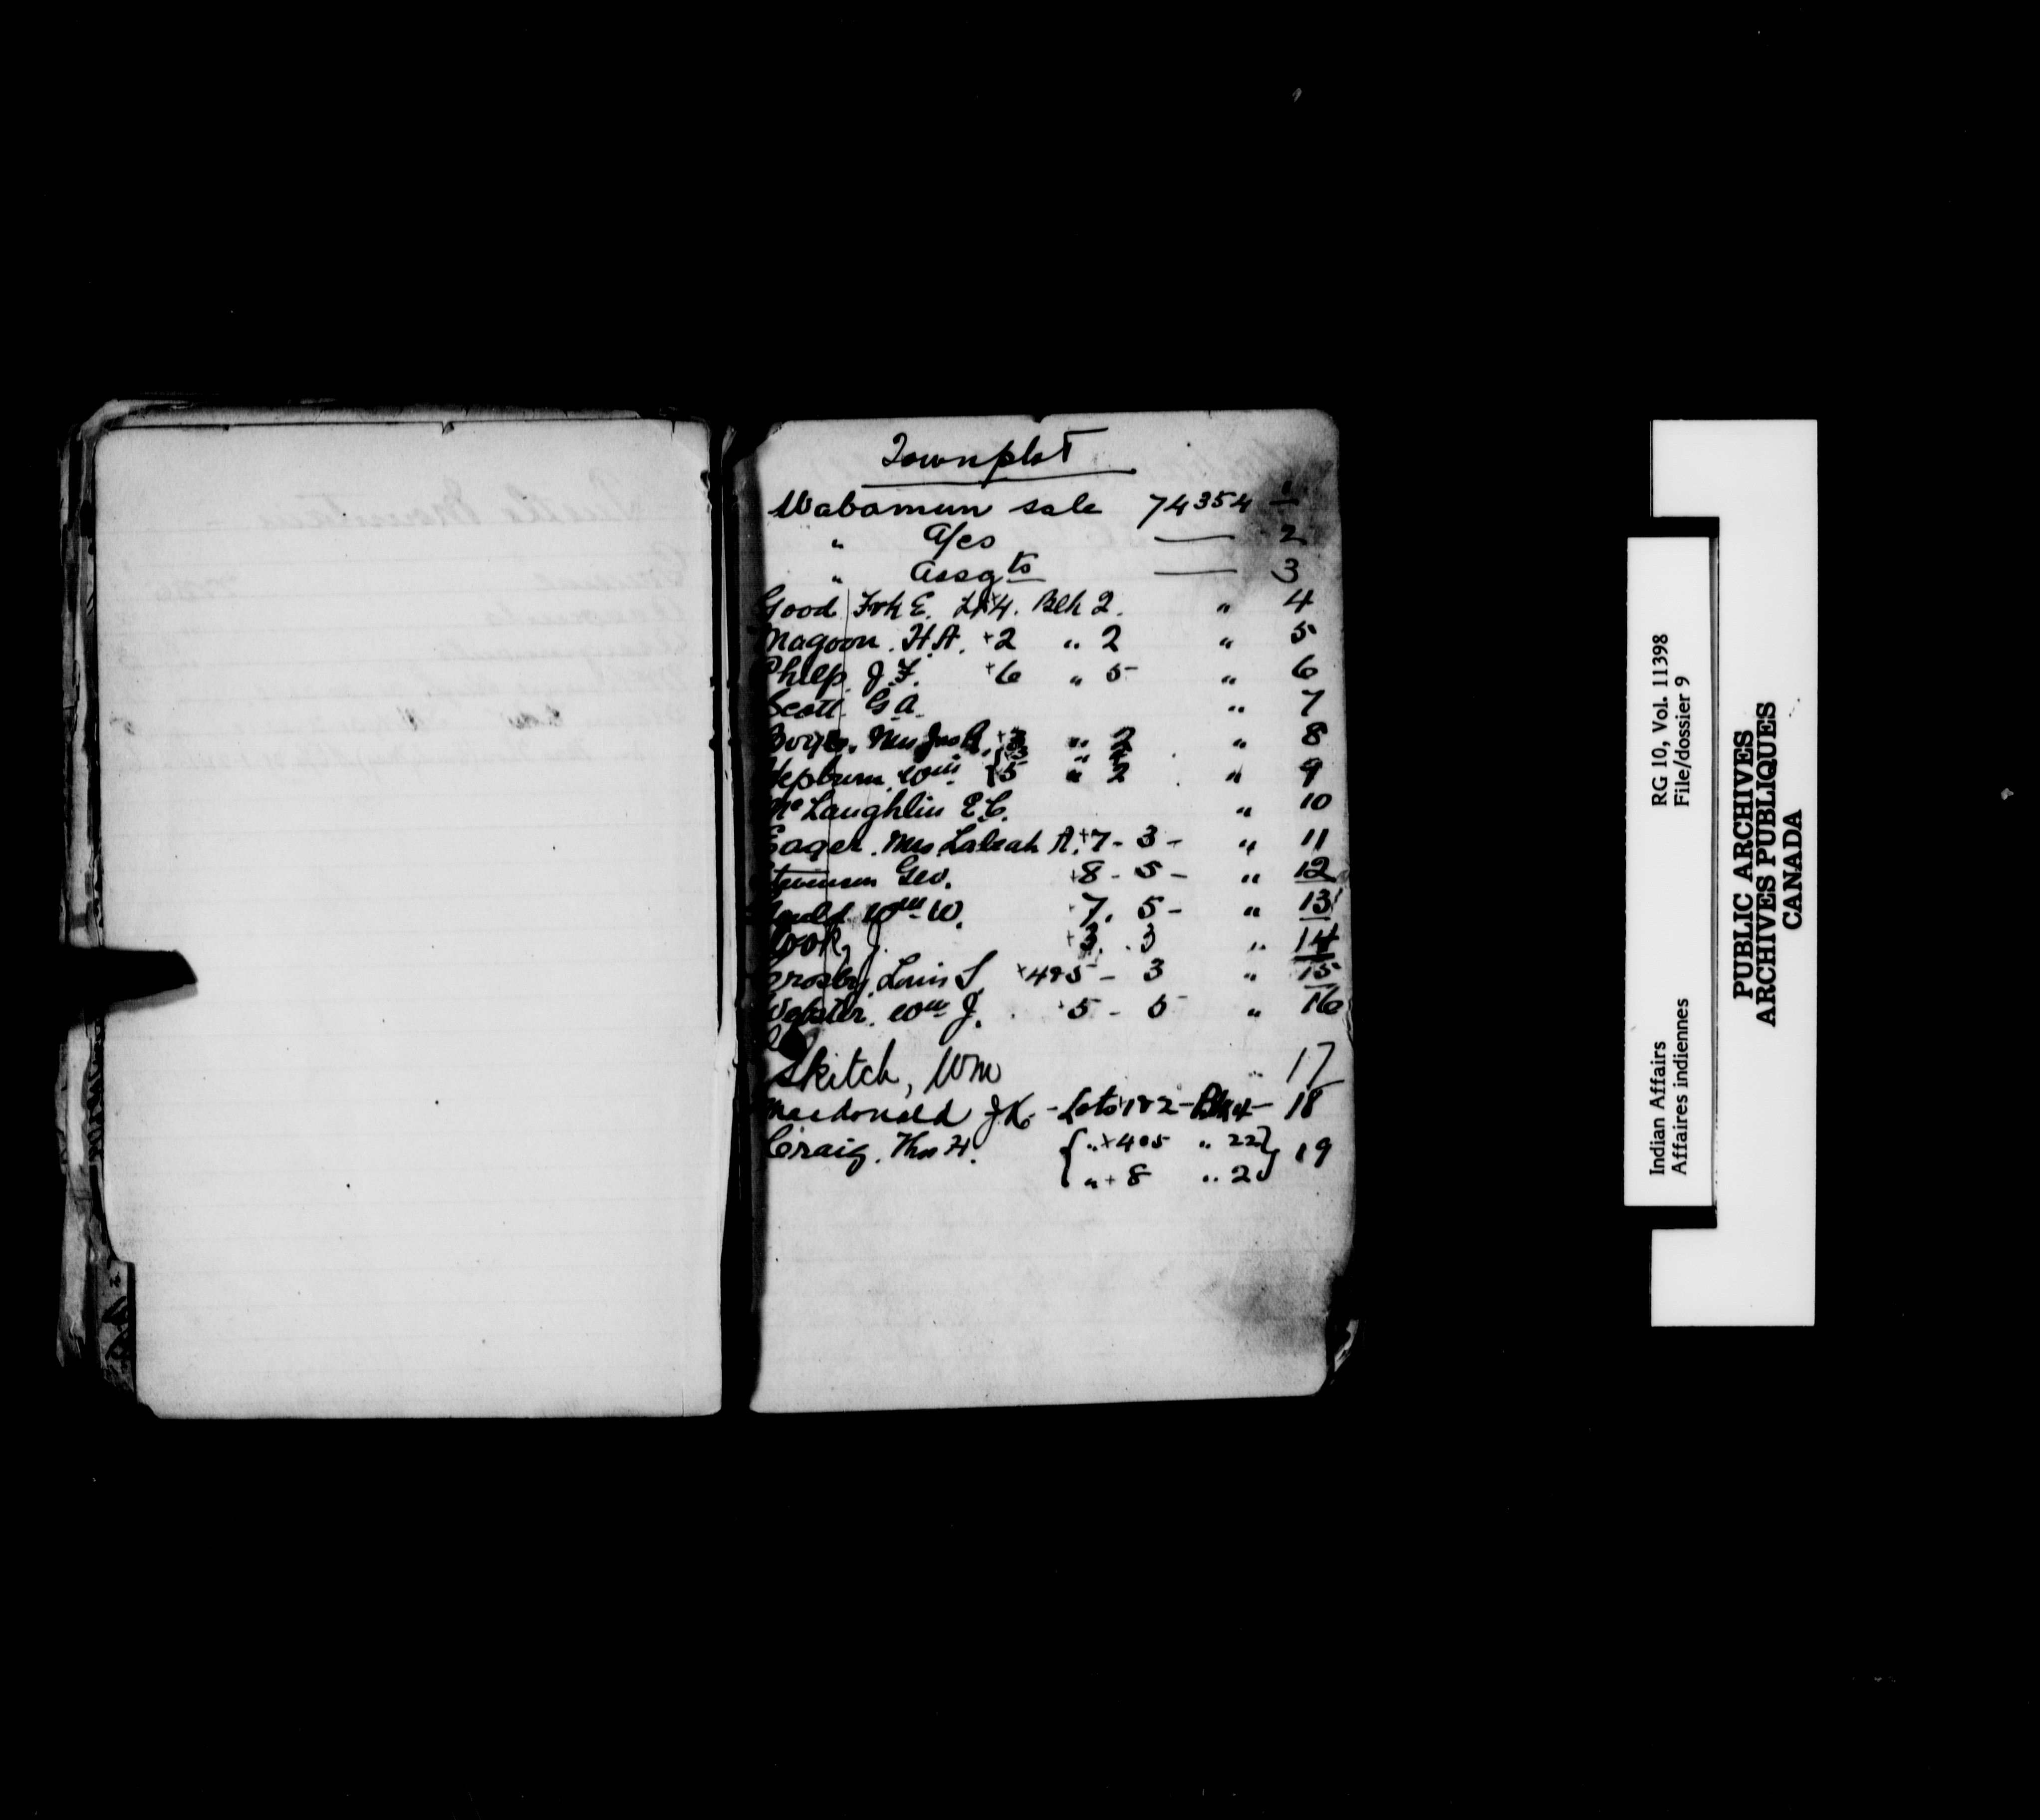 Townplot
Wabamun sale 74354 1
" a/cs —— 2
" Assgts —— 3
Good Frk E. Lot 4. Blk 2. " 4
Magoon. H.A. +2 " 2 " 5
Philp. J.F. +6 " 5 - " 6
Scott G.A. " 7
Mrs Jas " 2 " 8
Hepburn. Wm {5 " 2 " 9
McLaughlin E.C. " 10
Eager. Mrs A. +7 - 3 - " 11
Geo. +8 - 5 - " 12
Wm W. +7. 5 - " 13
Cook, J. +3. 3 " 14
Crosby, Louis S. +4&5 - 3 " 15
Webster. Wm J. +5 - 5 " 16
Sketch, Wm " 17
Macdonald J.K. - Lots +1&2 - Blk 4 - 18
Craig. Thos H. { " +4&5 " 22 } 19
" + 8 " 2
Indian Affairs RG 10, Vol. 11398
Affaires indiennes File/dossier 9
PUBLIC ARCHIVES
ARCHIVES PUBLIQUES
CANADA